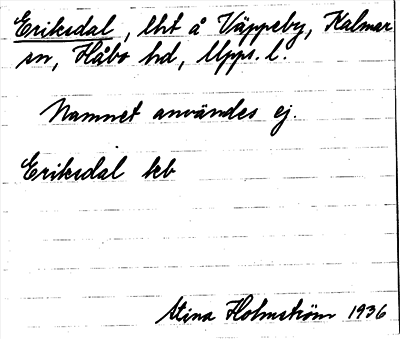 Eriksdal, lht å Väppeby, Kalmar
sn, Håbo hd, Upps. l.
Namnet användes ej.
Eriksdal kb
Stina Holmström 1936